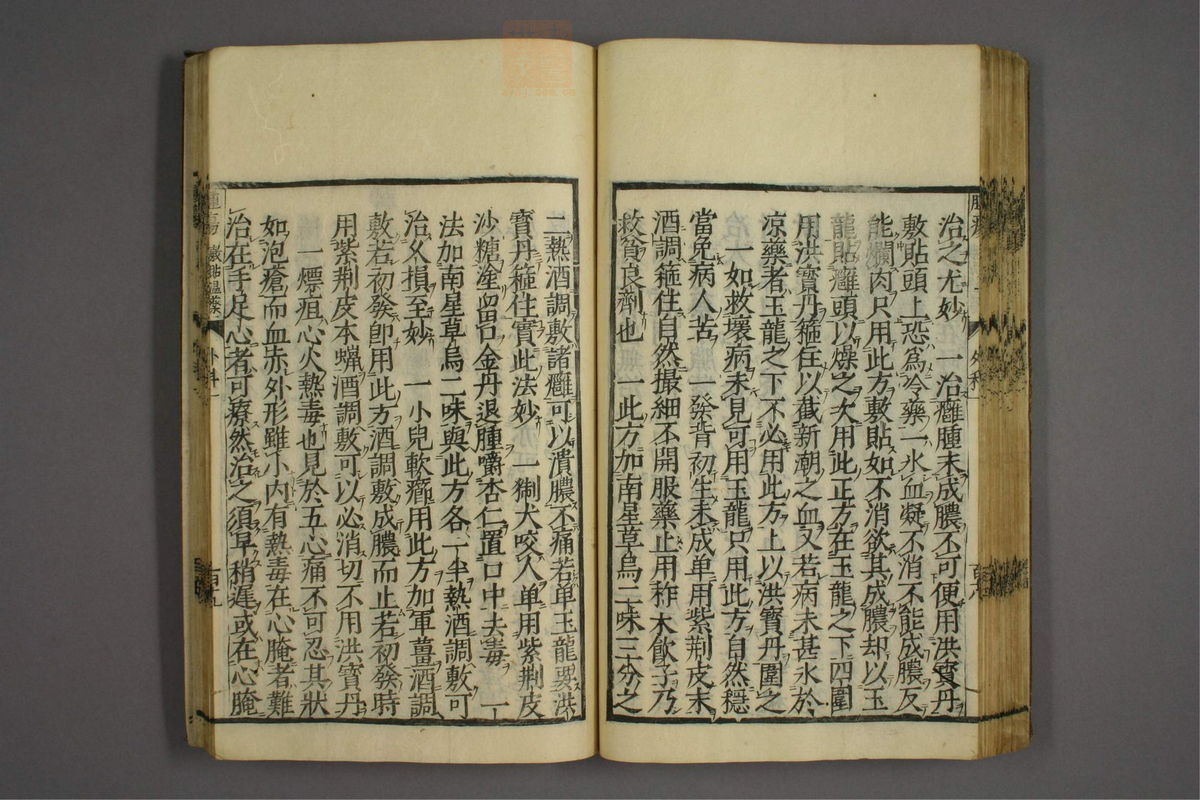 治之尤妙　一治癰腫未成膿不可便用洪寶丹
敷貼頭上恐為冷藥一氷血凝不消不能成膿反
能爛肉只用此方敷貼如不消欲其成膿却以玉
龍貼癰頭以燥之次用此正方在玉龍之下四圍
用洪寶丹箍住以截新潮之血又若病未甚氷於
凉藥者玉龍之下不必用此方上以洪寶丹圍之
一如救壞病未見可用玉龍只用此方自然穩
當免病人苦　一發背初生未成单用紫荆皮末
酒調箍住自然撮細不開服藥止用柞木飲子乃
救貧良劑也　一此方加南星草烏二味三分之
二熱酒調敷諸癰可以潰膿不痛若单玉龍要洪
寳丹箍住實此法妙　一猘犬咬人单用紫荆皮
沙糖塗留口金丹退腫嚼杏仁置口中去毒　一
法加南星草烏二味與此方各一半熱酒調敷可
治久損至妙　一小兒軟癤用此方加軍薑酒調
敷若初發卽用此方酒調敷成膿而止若初發時
用紫荆皮本蠟酒調敷可以必消切不用洪寶丹
一熛疽心火熱毒也見於五心痛不可忍其狀
如泡瘡而血赤外形雖小内有熱毒在心腌者難
治在手足心者可療然治之須早稍遲或在心腌
外科
百十九